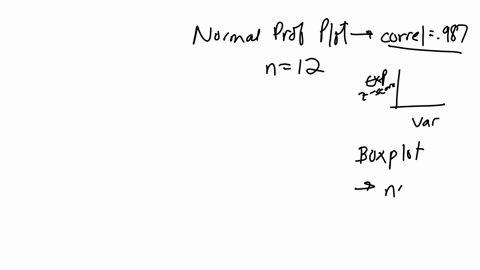 Normal Prof Plot → correl=.987
n=12
exp
z-score
Var
Boxplot
→ n'